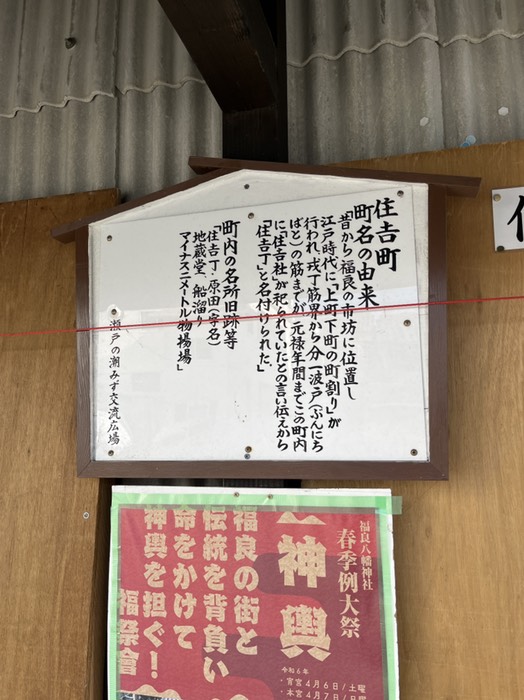 住吉町
町名の由来
昔から福良の市坊に位置し
江戸時代に「上町下町の町割り」が
行われ、戎丁筋界から分一波戸(ぶんにち
ばと)の筋までが、元禄年間までこの町内
に「住吉社」が祀られていたとの言い伝えから
「住吉丁」と名付けられた。
町内の名所旧跡等
「住吉丁・原田(字名)
地蔵堂、船溜り
マイナス二メートル物揚場」
瀬戸の潮みず交流広場
福良八幡神社
春季例大祭
神輿
令和6年
・宵宮 4月6日/土曜
・本宮 4月7日/日
福良の街と
伝統を背負い
命をかけて
神輿を担ぐ!
福祭會